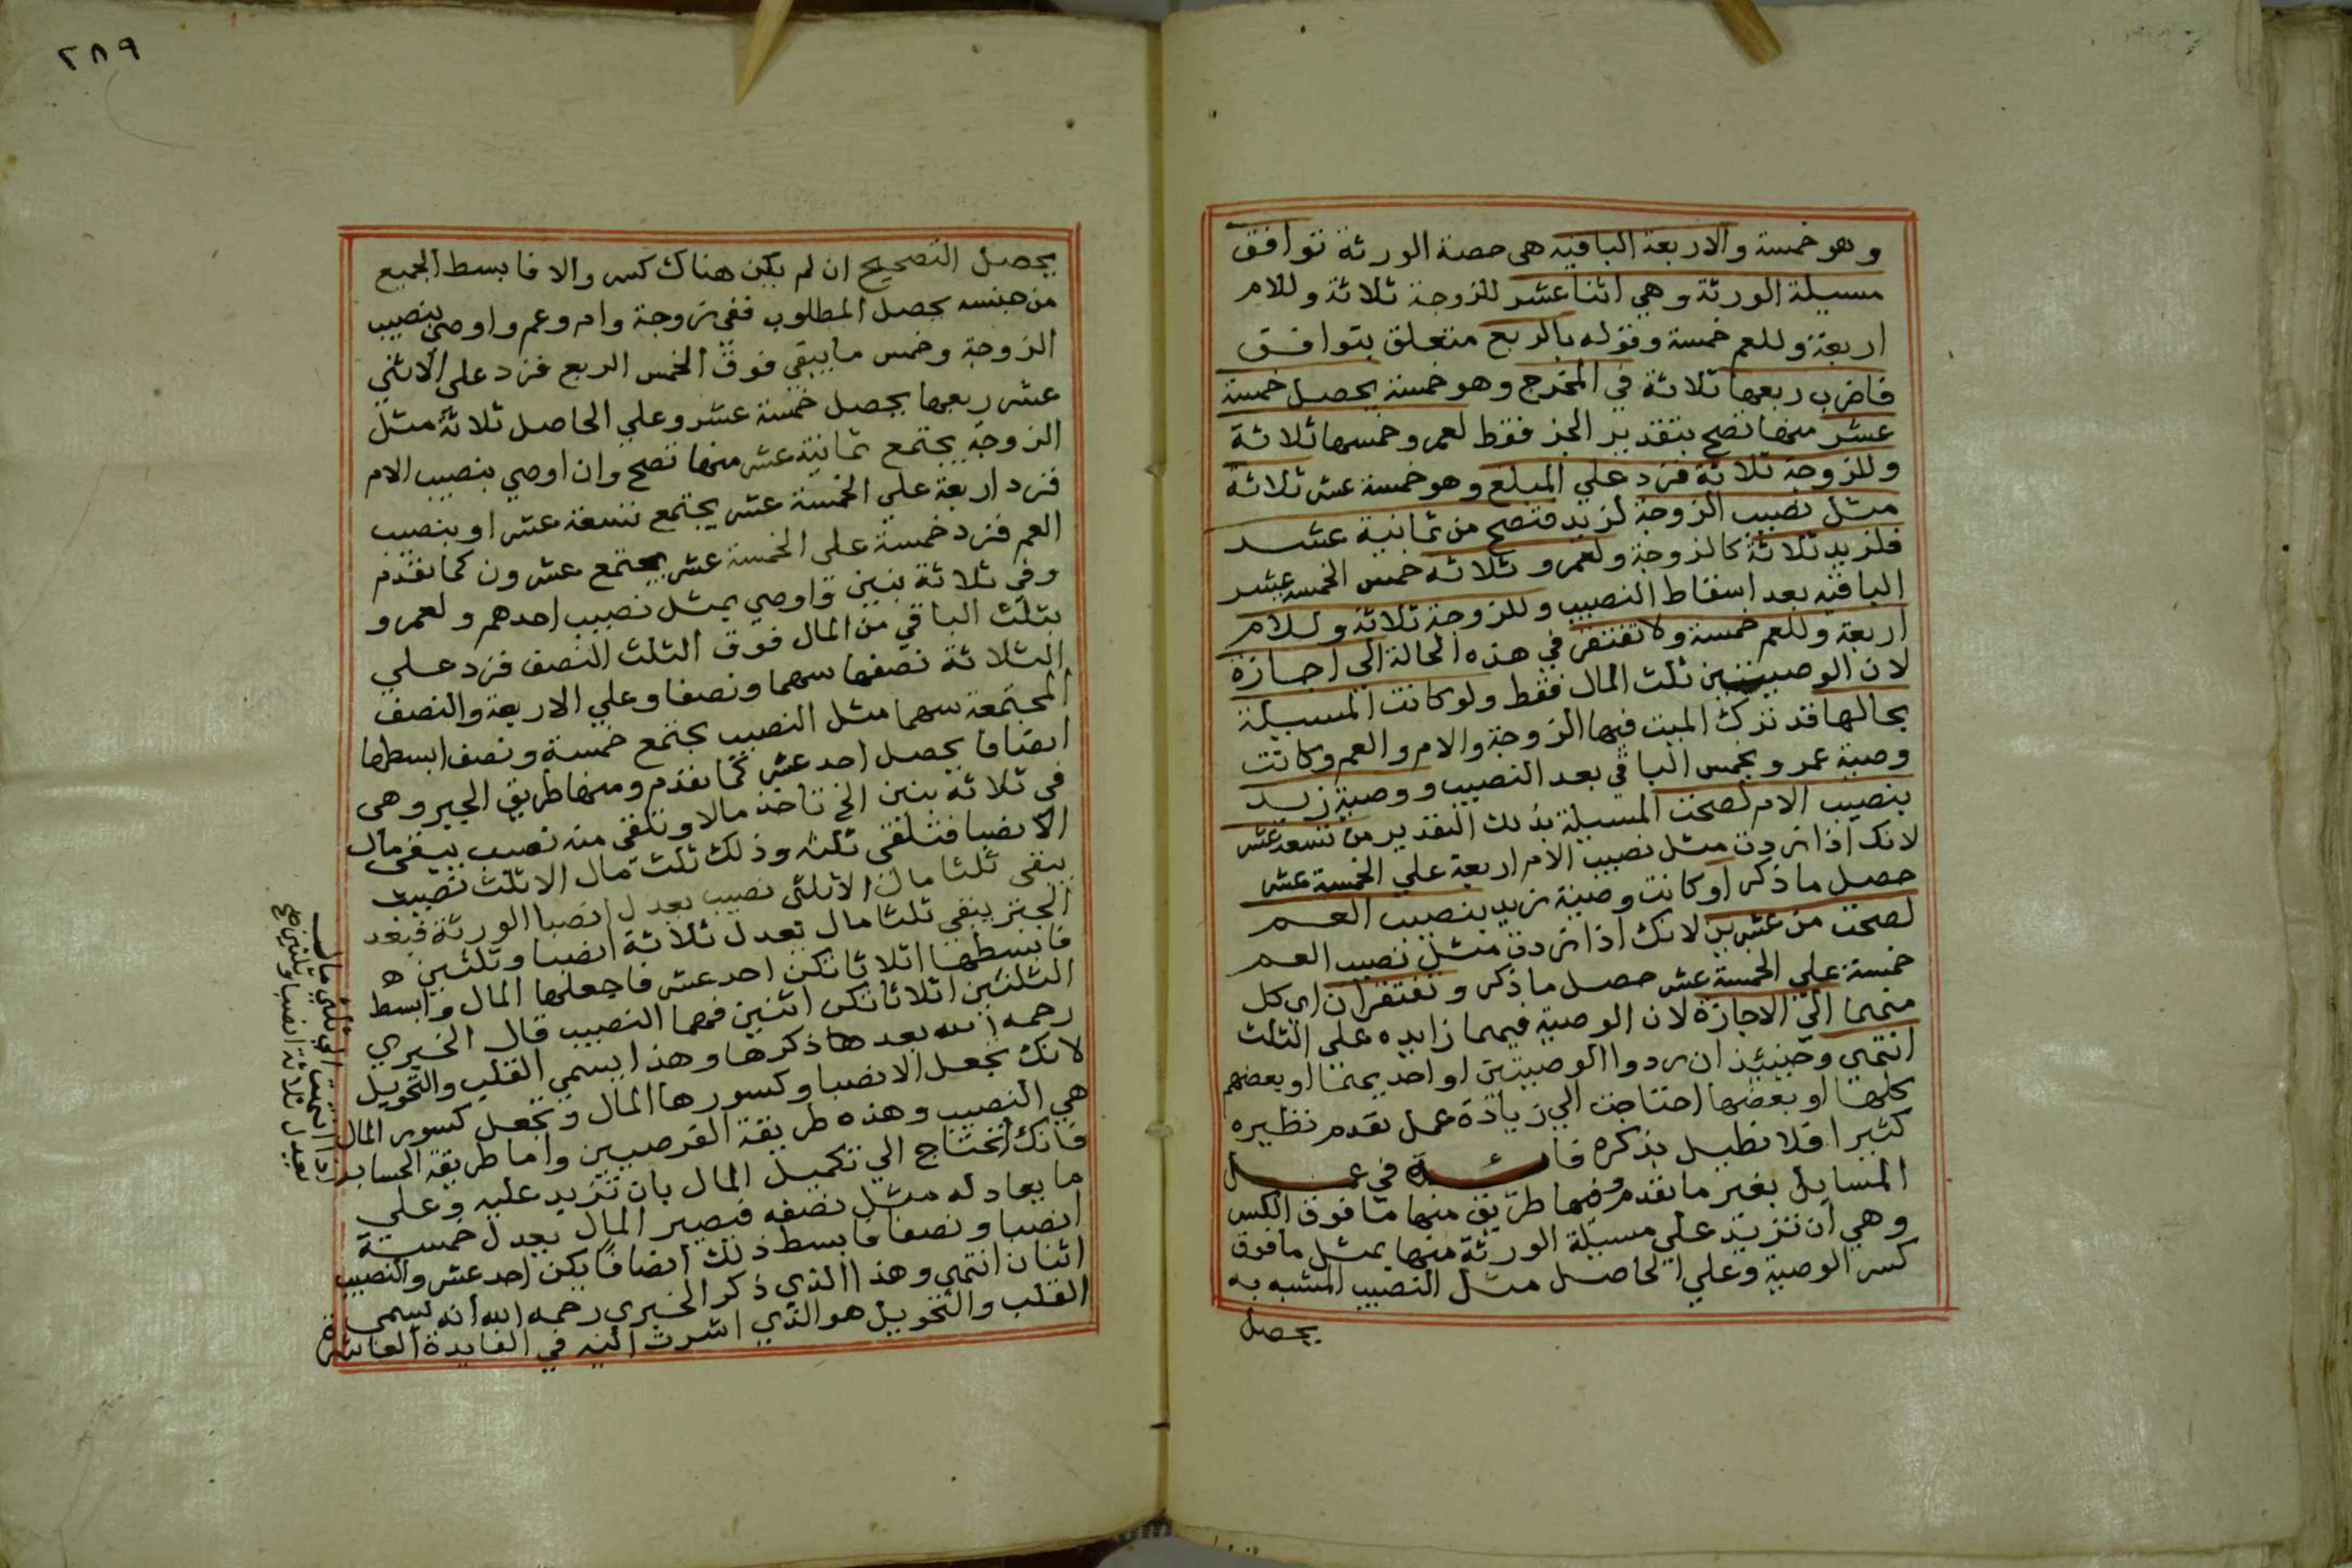 وهو خمسة والاربعة الباقيه هى حصة الورثة توافق
مسيلة الورثة وهي اثنا عشر للزوجة ثلاثة وللام
اربعة وللعم خمسة وقوله بالربع متعلق بتوافق
فاضرب ربعها ثلاثة في المخرج وهو خمسة يحصل خمسة
عشر منها تصح بتقدير الجز فقط لعمرو خمسها ثلاثة
وللزوجة ثلاثة فزد علي المبلغ وهو خمسة عشر ثلاثة
مثل نصيب الزوجة لزيد فتصح من ثمانية عشر
فلزيد ثلاثة كالزوجة ولعمرو ثلاثه خمس الخمسة عشر
الباقيه بعد اسقاط النصيب وللزوجة ثلاثة وللام
اربعة وللعم خمسة ولا تفتقر في هذه الحالة الي اجازة
لان الوصيتين ثلث المال فقط ولو كانت المسيلة
بحالها قد ترك الميت فيها الزوجة والام والعم وكانت
وصية عمرو بخمس الباقي بعد النصيب ووصية زيد
بنصيب الام لصحت المسيلة بذلك التقدير من تسعة عشر
لانك اذا زدت مثل نصيب الام اربعة علي الخمسة عشر
حصل ما ذكر او كانت وصية زيد بنصيب العم
لصحت من عشرين لانك اذا زدت مثل نصيب العم
خمسة علي الخمسة عشر حصل ما ذكر وتفتقران اي كل
منهما الي الاجازة لان الوصية فيهما زايده على الثلث
انتهى وحينئذ ان ردوا الوصيتين او احديهما او بعضهم
كلها او بعضها احتاجت الي زيادة عمل تقدم نظيره
كثيرا فلا نطيل بذكره فائدة في عمل
المسايل بغير ما تقدم وفيها طريق منها ما فوق الكسر
وهي ان تزيد علي مسيلة الورثة منها بمثل ما فوق
كسر الوصية وعلي الحاصل مثل النصيب المشبه به
يحصل
٢٨٩
يحصل التصحيح ان لم يكن هناك كسر والا فابسط الجميع
من جنسه يحصل المطلوب ففي زوجة وام وعم واوصي بنصيب
الزوجة وخمس ما يبقي فوق الخمس الربع فزد علي الاثني
عشر ربعها يحصل خمسة عشر وعلي الحاصل ثلاثة مثل
الزوجة يجتمع ثمانية عشر منها تصح وان اوصي بنصيب الام
فزد اربعة علي الخمسة عشر يجتمع تسعة عشر او بنصيب
العم فزد خمسة علي الخمسة عشر يجتمع عشرون كما تقدم
وفي ثلاثة بنين واوصي بمثل نصيب احدهم ولعمرو
بثلث الباقي من المال فوق الثلث النصف فزد علي
الثلاثة نصفها سهما ونصفا وعلي الاربعة والنصف
المجتمعة سهما مثل النصيب يجتمع خمسة ونصف ابسطها
انصافا يحصل احد عشر كما تقدم ومنها طريق الجبر وهى
في ثلاثة بنين الخ تاخذ مالا وتلقى منه نصيب يبقى مال
الا نصيبا فتلقى ثلثه وذلك ثلث مال الا ثلث نصيب
يبقى ثلثا مال الا ثلثى نصيب يعدل انصبا الورثة فبعد
الجبر يبقي ثلثا مال تعدل ثلاثة انصبا وثلثين ه
فابسطها اثلاثا تكن احد عشر فاجعلها المال وابسط
الثلثين اثلاثا تكن اثنين فهما النصيب قال الخبري
رحمه الله بعد ها ذكرها وهذا يسمي القلب والتحويل
لانك تجعل الانصبا وكسورها المال وتجعل كسور المال
هي النصيب وهذه طريقة الفرضيين واما طريقة الحساب
فانك تحتاج الي تكميل المال بان تزيد عليه وعلي
ما يعادله مثل نصفه فيصير المال يعدل خمسة
انصبا ونصفا فابسط ذلك انصافا يكن احد عشر والنصيب
اثنان انتهى وهذا الذي ذكر الخبري رحمه الله انه يسمى
القلب والتحويل هو الذي اشرت اليه في الفايدة العاشرة